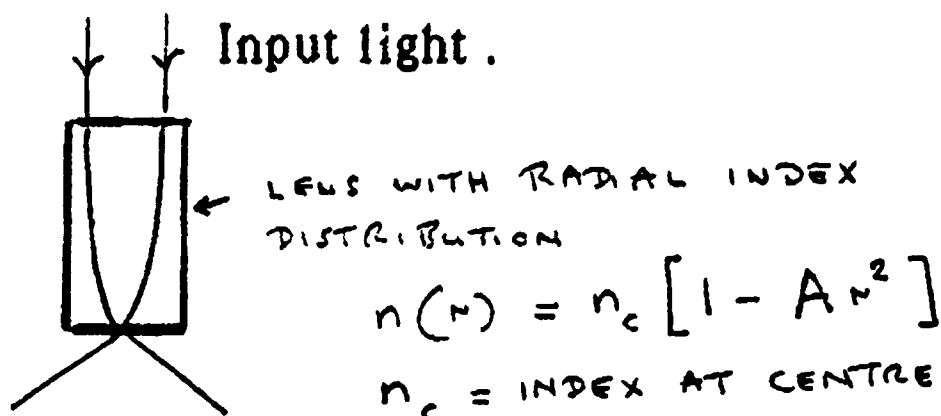 Input light .
LENS WITH RADIAL INDEX
DISTRIBUTION
n(r) = n_c [1 - A r²]
n_c = INDEX AT CENTRE